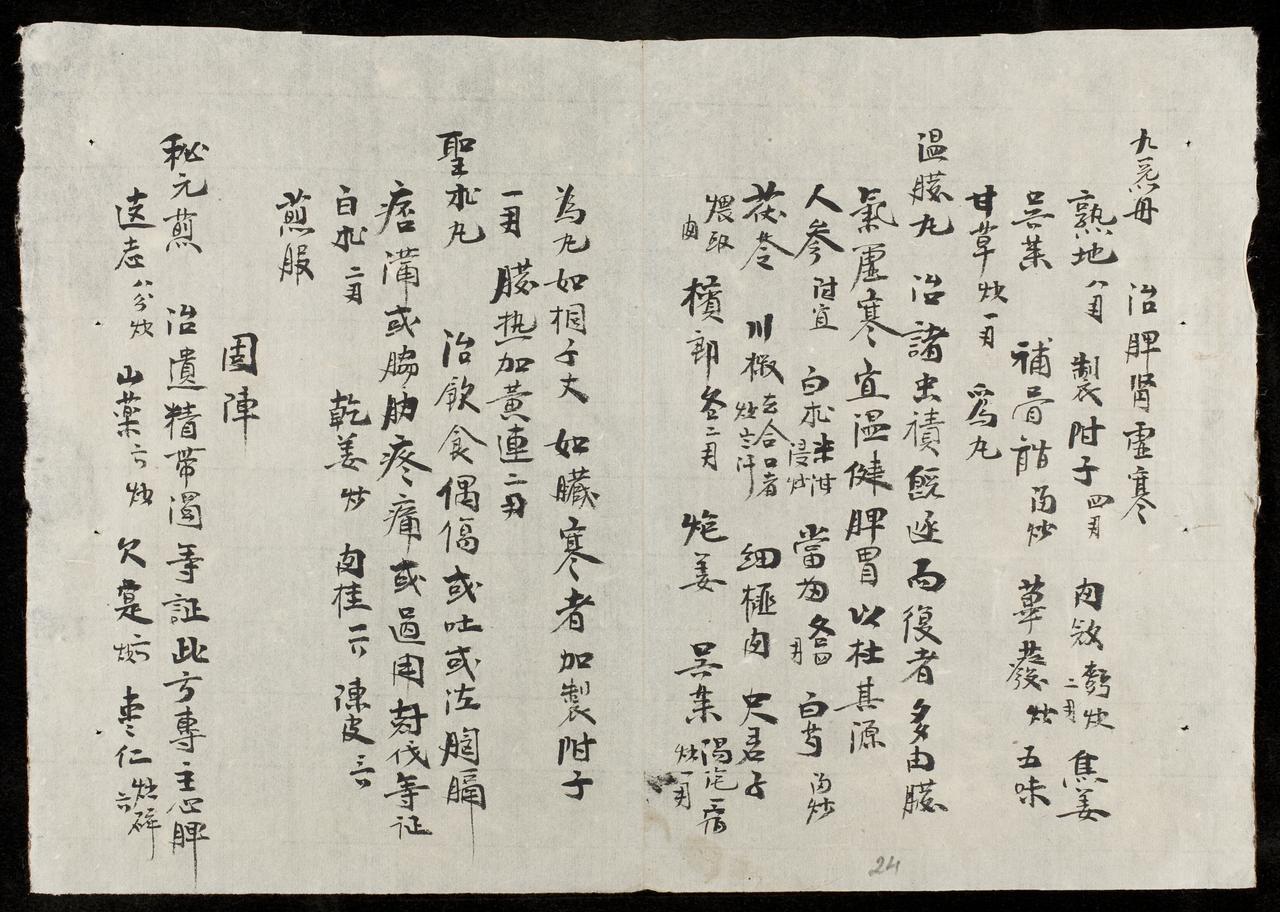 九炁丹 治脾腎虛寒
熟地八月 製附子四月 肉蔻麵炒二月 焦姜
吳茱 補骨脂酒炒 蓽發炒 五味
甘草炒一月 為丸
温臟丸 治諸虫積既逐而復者多由臟
氣虛寒宜温健脾胃以杜其源
人參附宜 白朮米泔浸炒 當歸各四月 白芍酒炒
茯苓 川椒去合口者炒出汗 細榧肉 史君子
煨取肉 檳郎各二月 炮姜 吳茱湯泡一宿炒一月
為丸如梧子大 如臟寒者加製附子
一月 臟热加黃連二月
聖朮丸 治飲食偶傷或吐或泣胸膈
痞滯或脇肋疼痛或過用尅伐等证
白朮二月 乾姜炒 肉桂一六 陳皮
煎服
固陣
秘元煎 治遺精带濁等証此方專主心脾
远志八分炒 山藥六炒 欠寔炒六 枣仁炒碎六
24